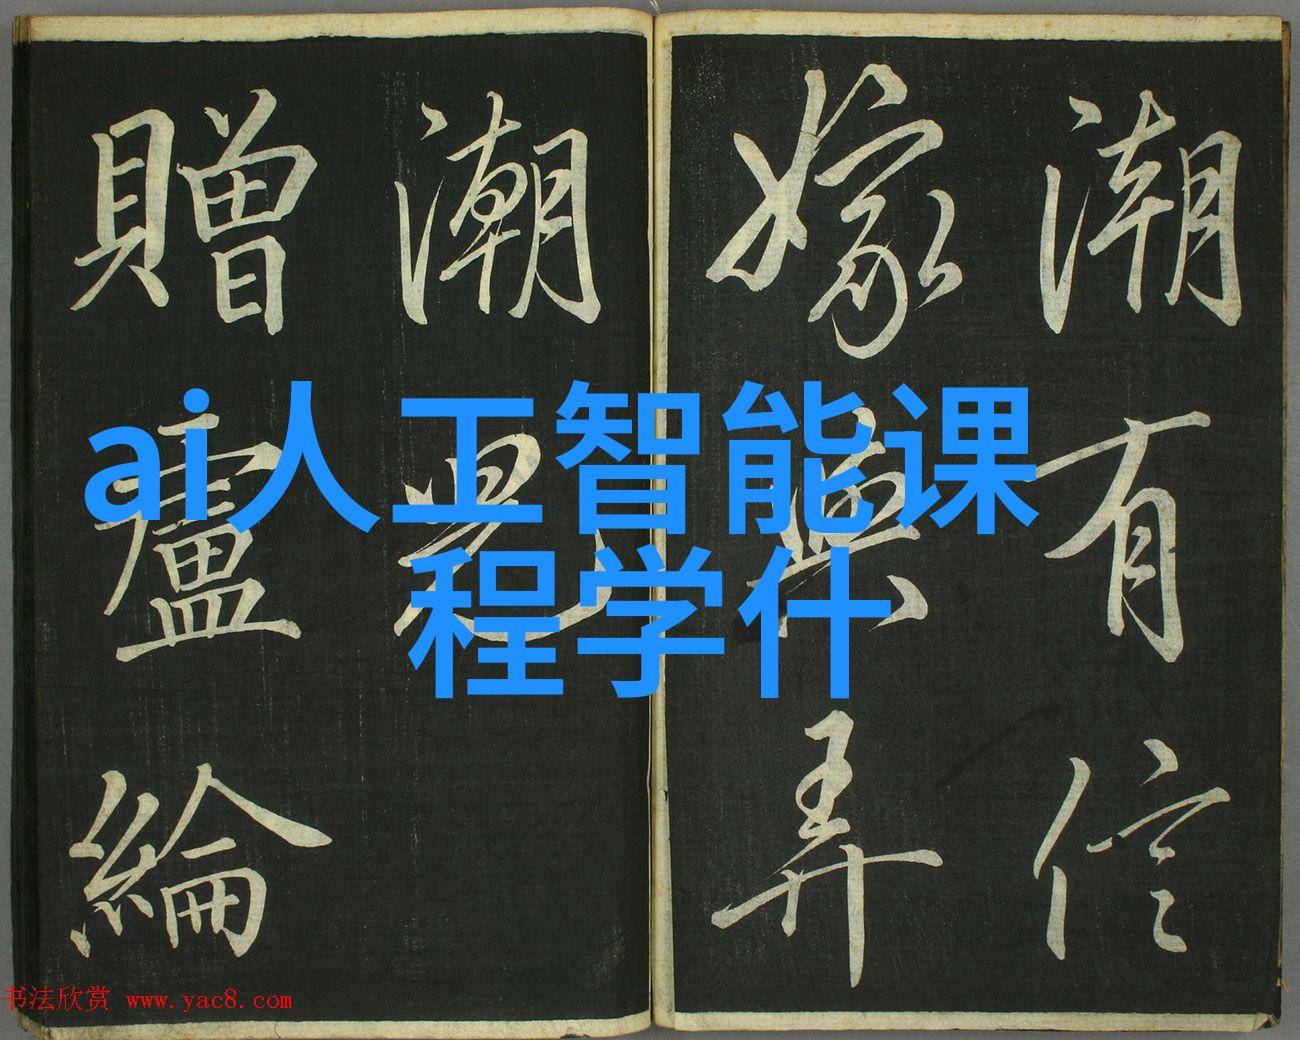 潮有信
嫁與弄
潮兒
贈盧綸
ai人工智能课
程学什
书法欣赏 www.yac8.com